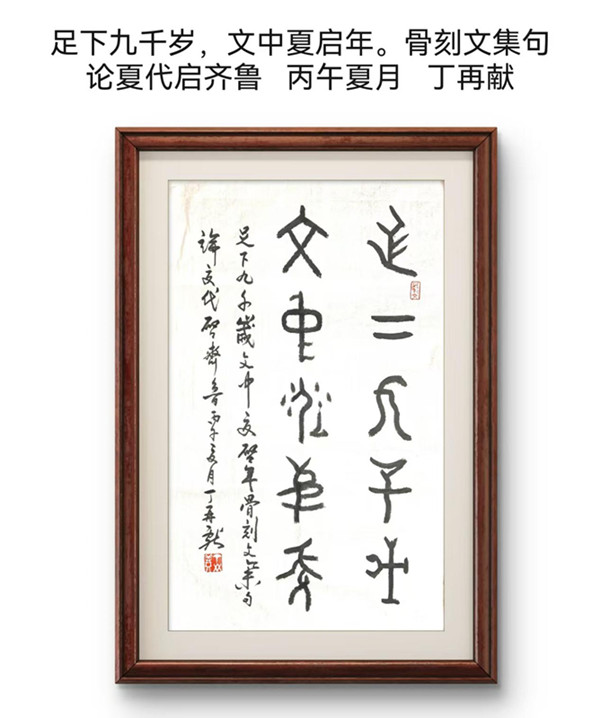 足下九千岁，文中夏启年。骨刻文集句
论夏代启齐鲁 丙午夏月 丁再献
足下九千歲
文中夏啟年
足下九千歲文中夏啟年骨刻文集句
論夏代啟齊魯丙午夏月丁再獻